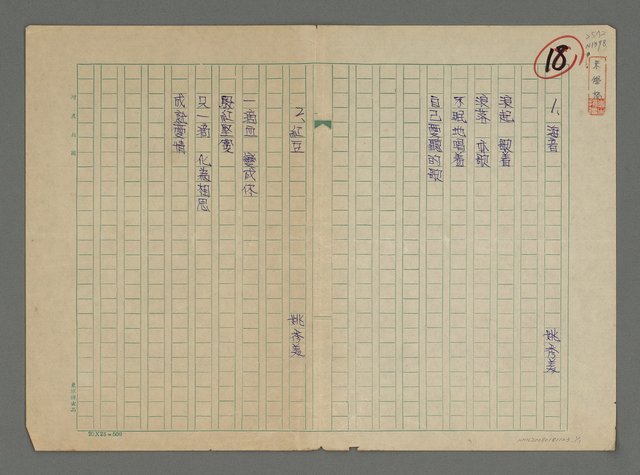 18
1、海音
姚秀美
浪起 歌着
浪落 亦歌
不眠地唱着
自己愛聽的歌
2、紅豆
姚秀美
一滴血 變成你
殷紅堅實
又一滴 化為相思
成就愛情
20×25=500